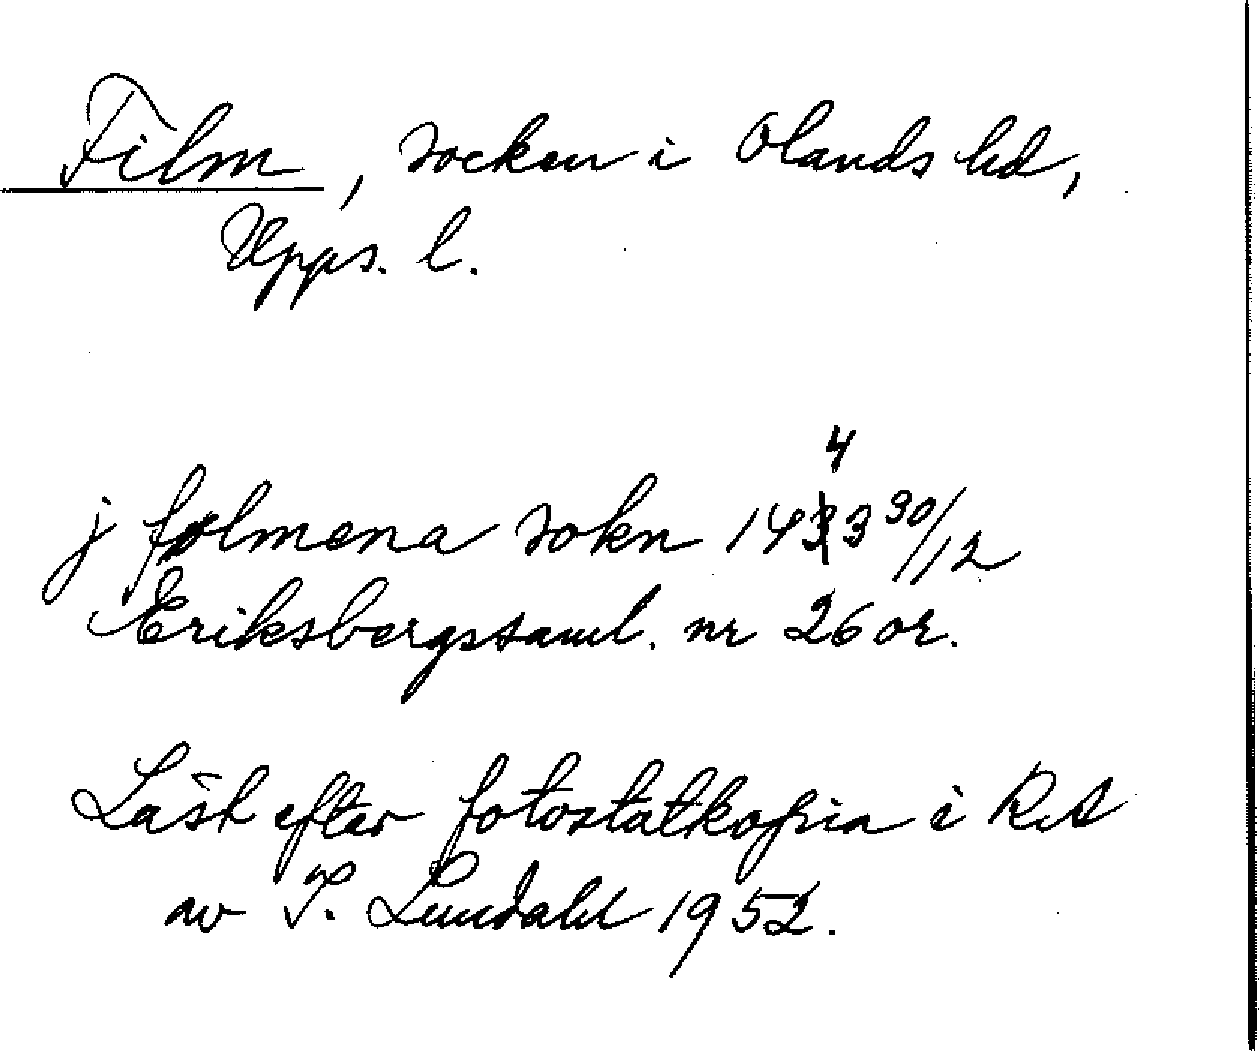 Film, socken i Olands hd,
Upps. l.
j fylmena sokn 1443 30/12
Eriksbergssaml. nr 26 or.
Läst efter fotostatkopia i RA
av I. Lundahl 1952.